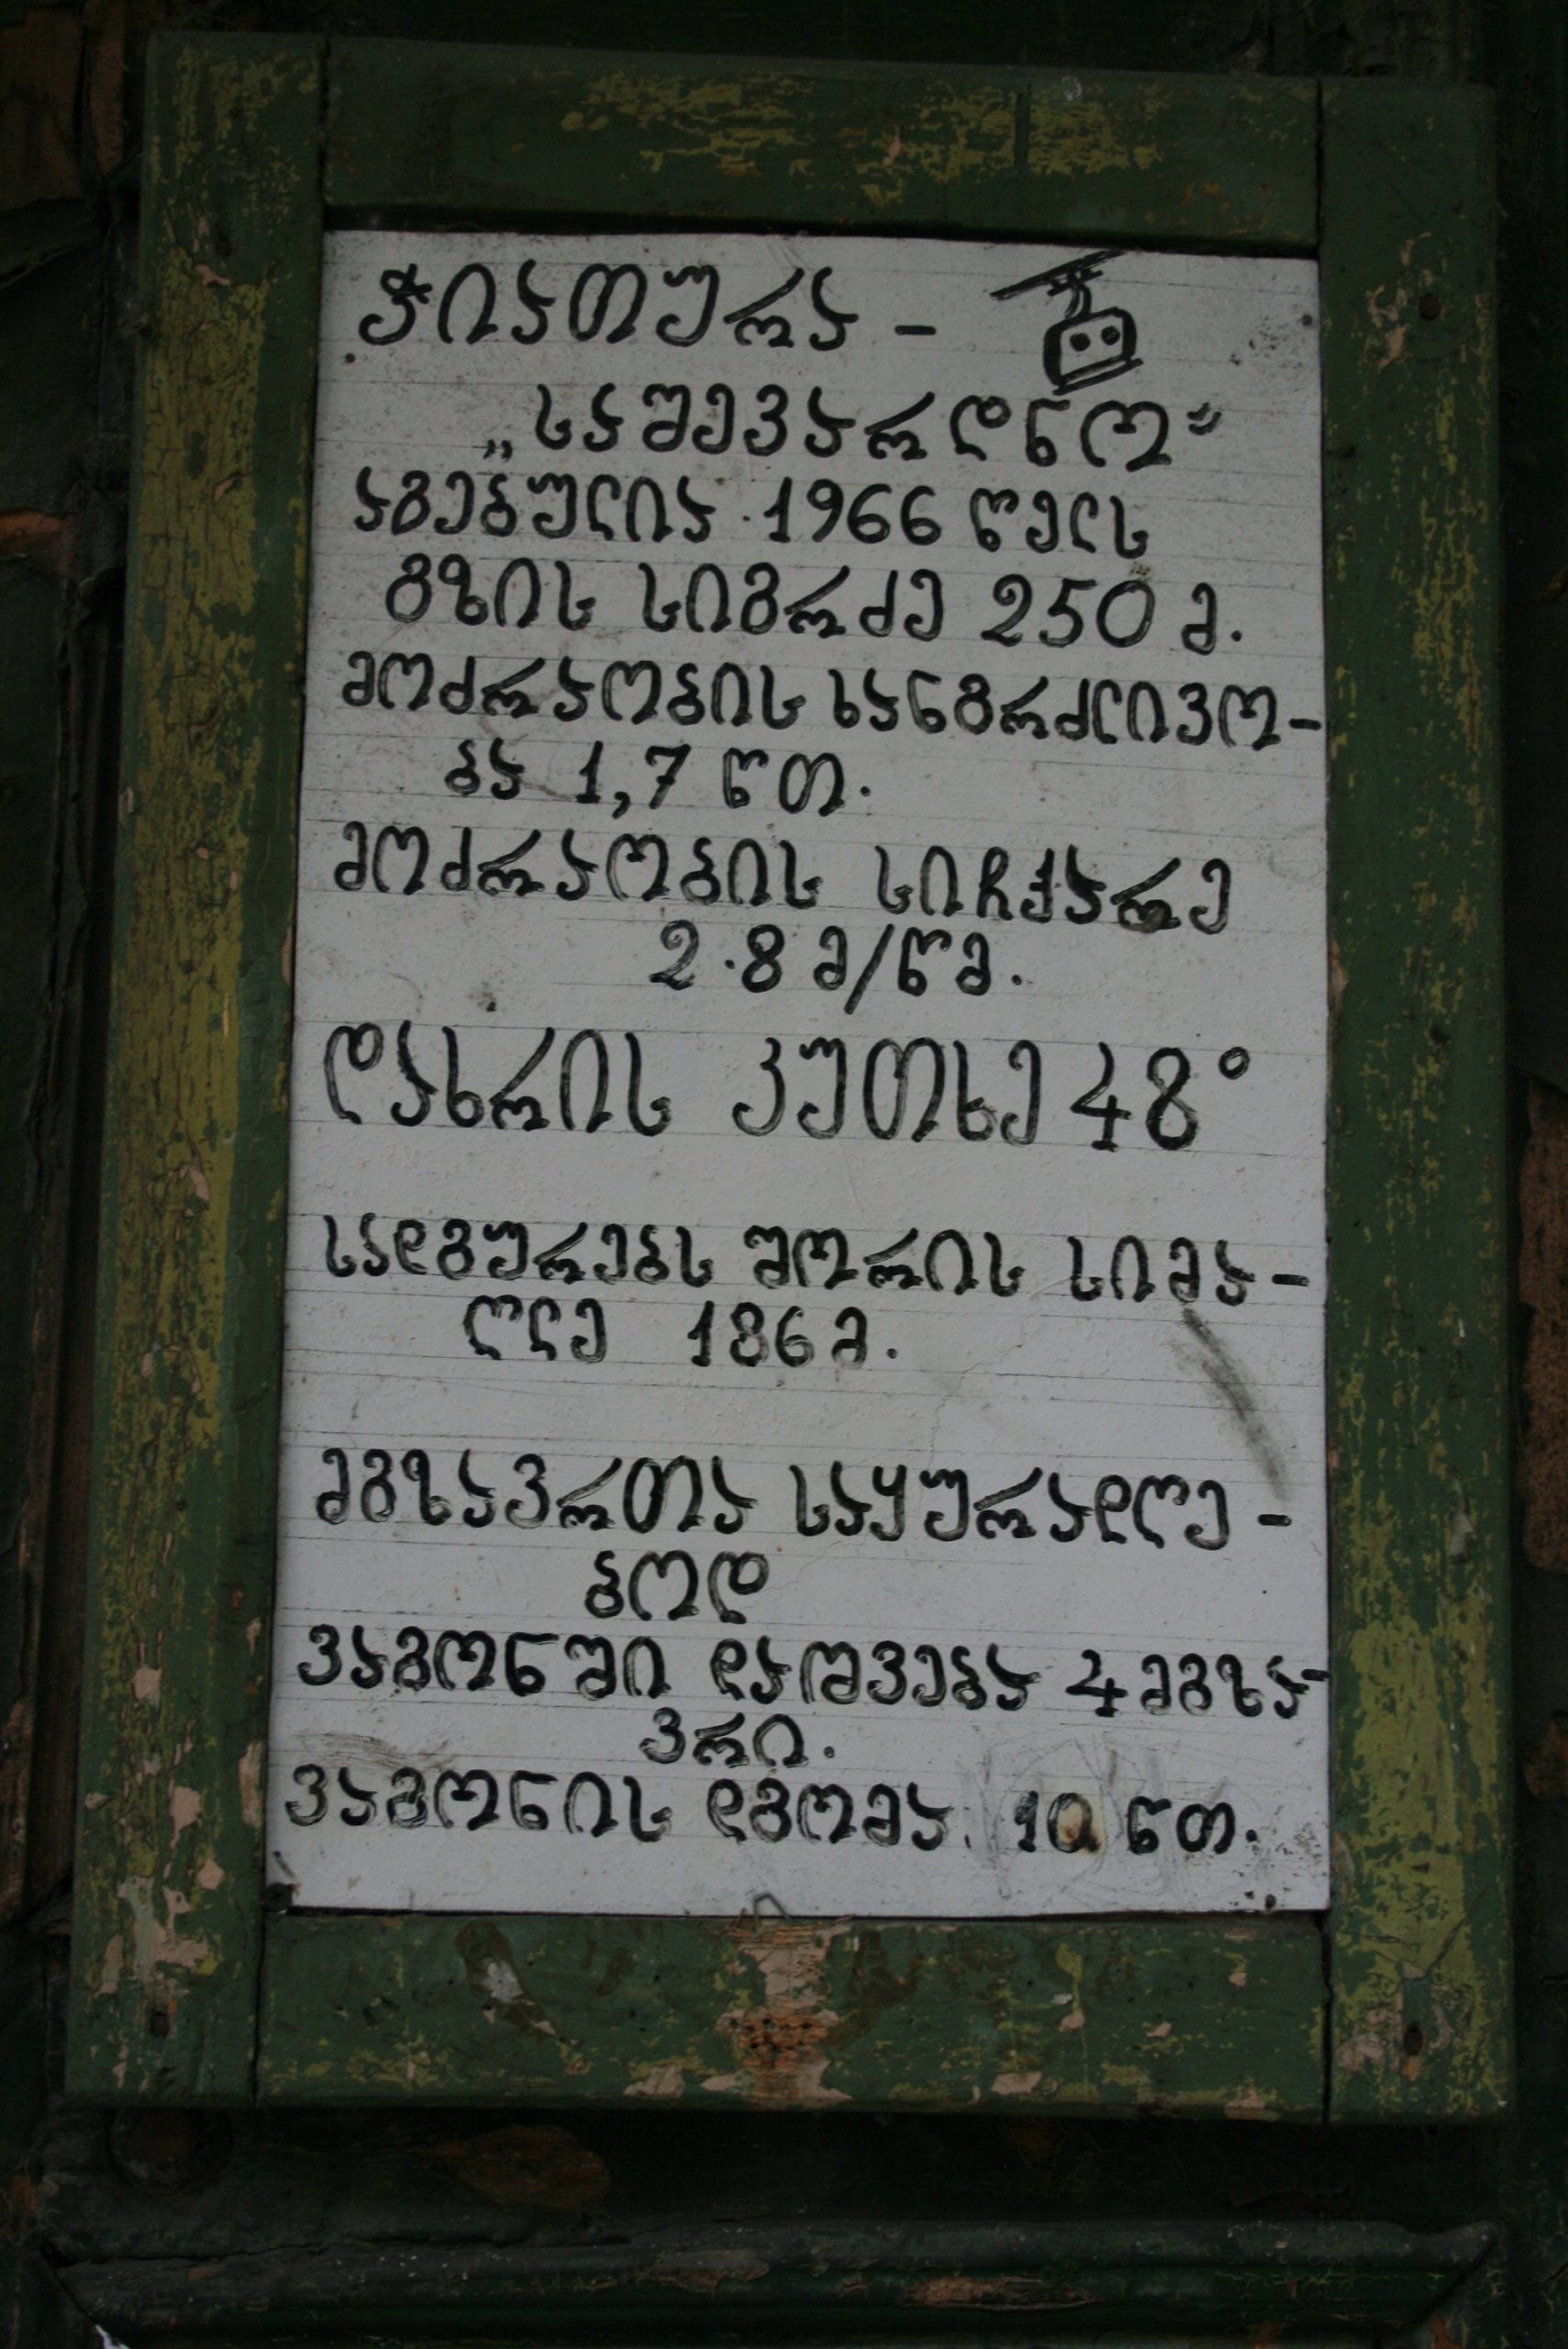 ჭიათურა -
„საშევარდნო"
აგებულია 1966 წელს
გზის სიგრძე 250 მ.
მოძრაობის ხანგრძლივო-
ბა 1,7 წთ.
მოძრაობის სიჩქარე
2.8 მ/წმ.
დახრის კუთხე 48°
სადგურებს შორის სიმა-
ღლე 186მ.
მგზავრთა საყურადღე-
ბოდ
ვაგონში დაიშვება 4 მგზა-
ვრი.
ვაგონის დგომა 10 წთ.